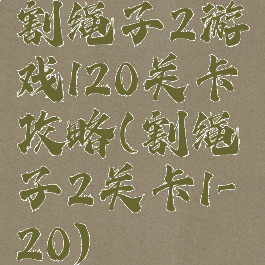 割绳子2游
戏120关卡
攻略(割绳
子2关卡1-
20)